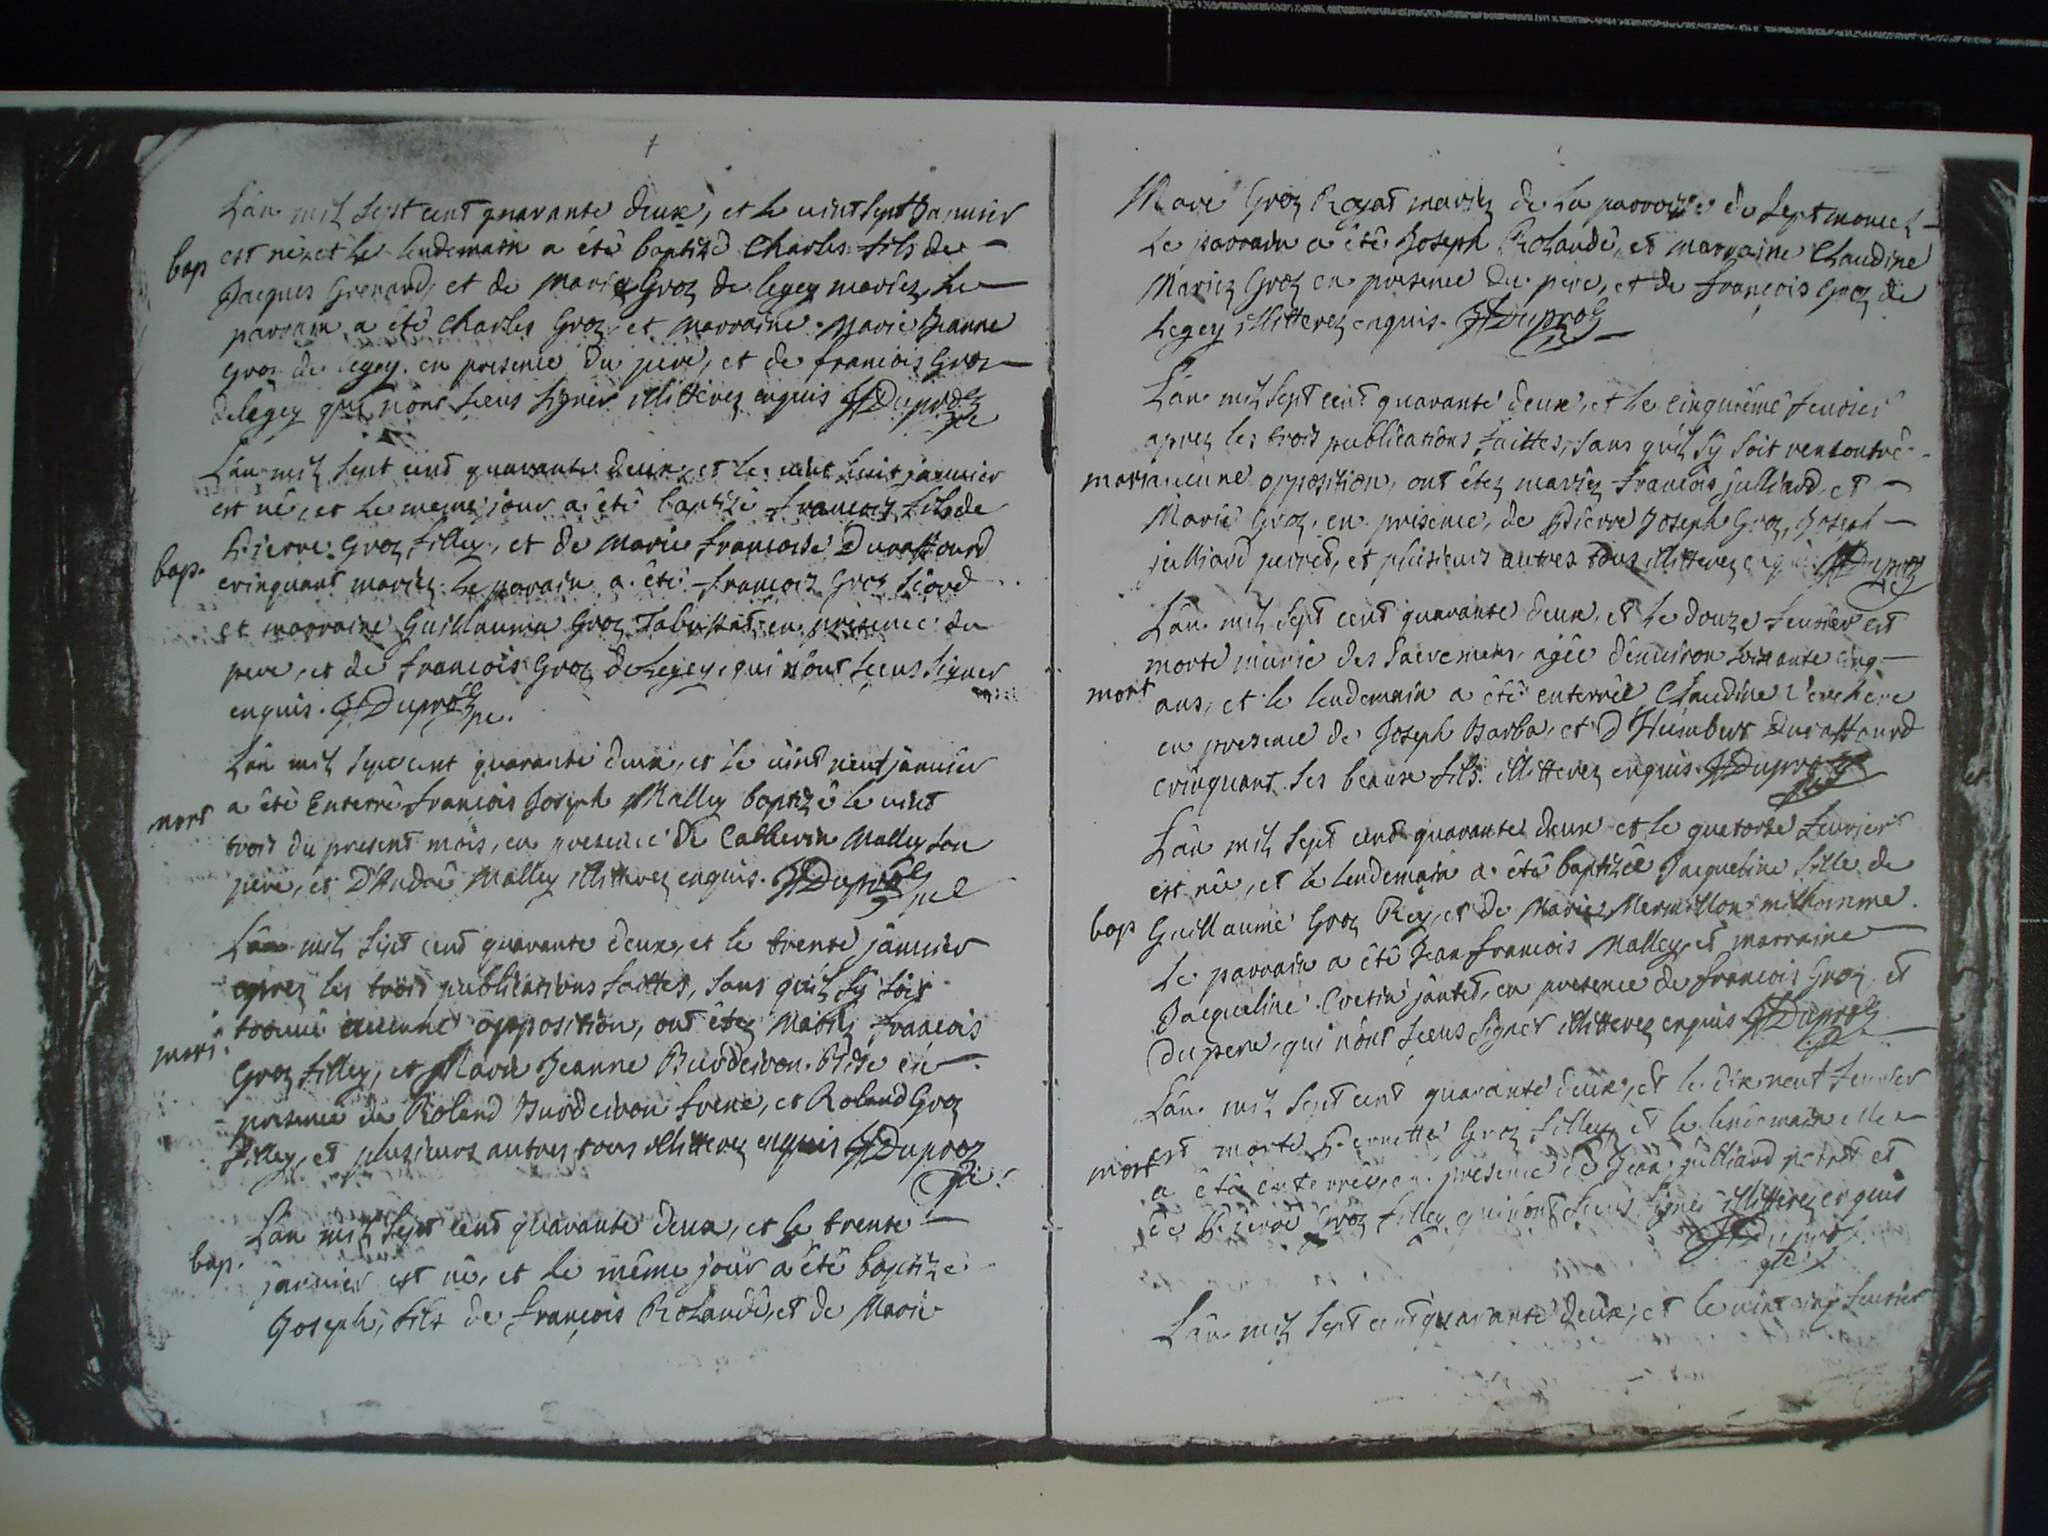 L'an mil sept cent quarante deux, et le vint sept Janvier
bap est né, et le lendemain a été baptizé Charles fils de
Jacques Grenard, et de Marie Groz de legey mariez, le
parrain a été Charles Groz et marraine Marie Jeanne
Groz de legey en presence du pere, et de francois Groz
de legey qui n'ont sceus signer illitterez enquis JfDuproz
L'an mil sept cent quarante deux, et le vint huit janvier
est né, et le meme jour a été baptizé francois fils de
bap. Pierre Groz filley, et de Marie francoise Duraffourd
crinquant mariez. le parain a été francois Groz
et marraine Guillauma Groz en presence du
pere, et de francois Groz de Legey, qui n'ont sceus signer
enquis. JfDuproz
L'an mil sept cent quarante deux, et le vint neuf janvier
mort a été Enterré francois Joseph Malley baptizé le vint
trois du present mois, en presence de Catherin Malley son
pere, et D'André Malley illitterez enquis. JfDuproz
L'an mil sept cent quarante deux, et le trente janvier
aprez les trois publications faittes, sans qu'il sy soit
mari. aucune opposition, ont étez mariez francois
Groz filley, et Marie Jeanne Burdeiron en
presence de Roland Burdeiron frere, et Roland Groz
filley, et plusieurs autres tous illitterez enquis JfDuproz
L'an mil sept cent quarante deux, et le trente
bap. janvier est né, et le même jour a été baptizé
Joseph, fils de françois Rolandé, et de Marie
Marie Groz Royat mariez de la parroisse de Septmoncel
Le parrain a été Joseph Rolandé, et marraine Claudine
Mariez Groz en presence du pere, et de françois Groz de
Legey illitterez enquis. JfDuproz
L'an mil sept cent quarante deux, et le cinquiéme fevrier
aprez les trois publications faittes, sans qu'il sy soit rencontré
mari aucune opposition, ont étez mariez francois julliard et
Marie Groz, en presence, de Pierre Joseph Groz, Joseph
julliard perret, et plusieurs autres tous illitterez JfDuproz
L'an mil sept cent quarante deux, et le douze fevrier est
morte munie des sacremens, agée d'environ soixante cinq
mort ans, et le lendemain a été enterrée Claudine
en presence de Joseph Barba, et D'Humbert Duraffourd
crinquant ses beaux fils. illitterez enquis. JfDuproz
L'an mil sept cent quarante deux et le quatorze fevrier
est née, et le lendemain a été baptizée Jacqueline fille de
bap Guillaume Groz Rey, et de Marie Mermillon milhomme.
Le parrain a été Jean francois Malley, et marraine
Jacqueline Cretin jantet, en presence de francois Groz et
du pere, qui n'ont sceus signer illitterez enquis JfDuproz
L'an mil sept cent quarante deux, et le dix neuf fevrier
est morte Pernette Groz filley, et le lendemain elle
mort a été enterrée, en presence de Jean julliard perret et
de Pierre Groz filley qui n'ont sceus signer illitterez enquis
JfDuproz
L'an mil sept cent quarante deux, et le vint cinq fevrier